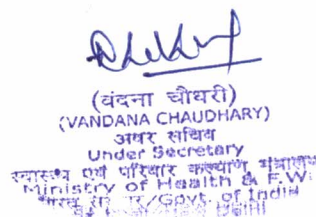 (वंदना चौधरी)
(VANDANA CHAUDHARY)
अवर सचिव
Under Secretary
स्वास्थ्य एवं परिवार कल्याण मंत्रालय
Ministry of Health & F.W.
भारत सरकार/Govt. of India
Delhi